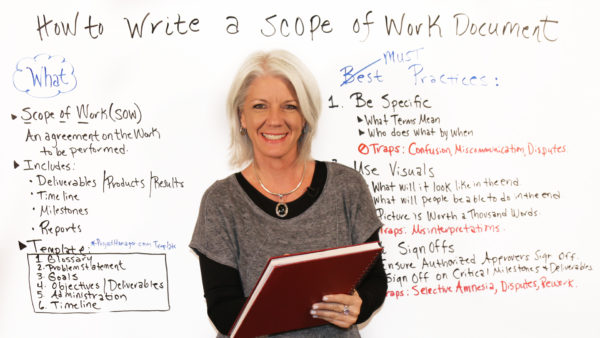 How to Write a Scope of Work Document
What
▶ Scope of Work (SOW)
An agreement on the Work
to be performed.
▶ Includes:
• Deliverables / Products / Results
• Timeline
• Milestones
• Reports
▶ Template: *ProjectManager.com Template
1. Glossary
2. Problem Statement
3. Goals
4. Objectives / Deliverables
5. Administration
6. Timeline
MUST
Best Practices:
1. Be Specific
▶ What Terms Mean
▶ Who does what by when
Traps: Confusion, Miscommunication, Disputes
Use Visuals
What will it look like in the end.
What will people be able to do in the end
Picture is Worth a Thousand Words.
Traps: Misinterpretations.
Sign Offs
Ensure Authorized Approvers Sign Off.
Sign Off on Critical Milestones & Deliverables
Traps: Selective Amnesia, Disputes, Rework.